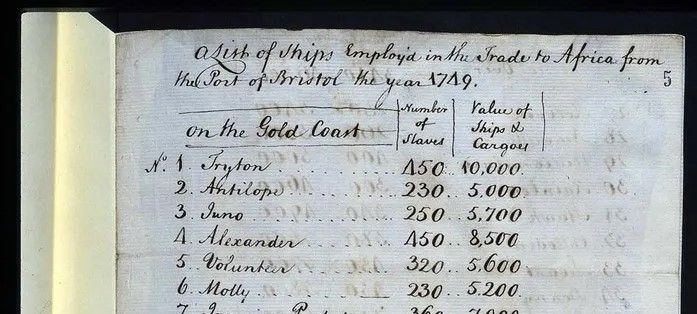 A List of Ships Employ'd in the Trade to Africa from
the Port of Bristol the year 1749.
5
on the Gold Coast Number of Slaves Value of Ships & Cargoes
No. 1 Tryton 450 10,000
2 Antilope 230 5,000
3 Juno 250 5,700
4 Alexander 450 8,500
5 Volunteer 320 5,600
6 Molly 230 5,200
7 360